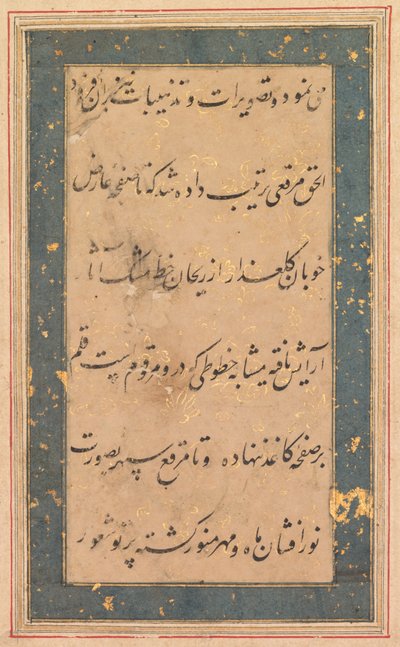 نمود و تصویرات و تذهیبات نیز بران افزود
الحق مرقعی ترتیب داده شد که تا صفحه عارض
خوبان گلعذار از ریحان خط مشک
آرایش یافته مشابه خطوطی که در و مرقوم است قلم
بر صفحه کاغذ ننهاده و تا مرقع سپهر بصورت
نور افشان ماه و مهر منور گشته پرتو شعور